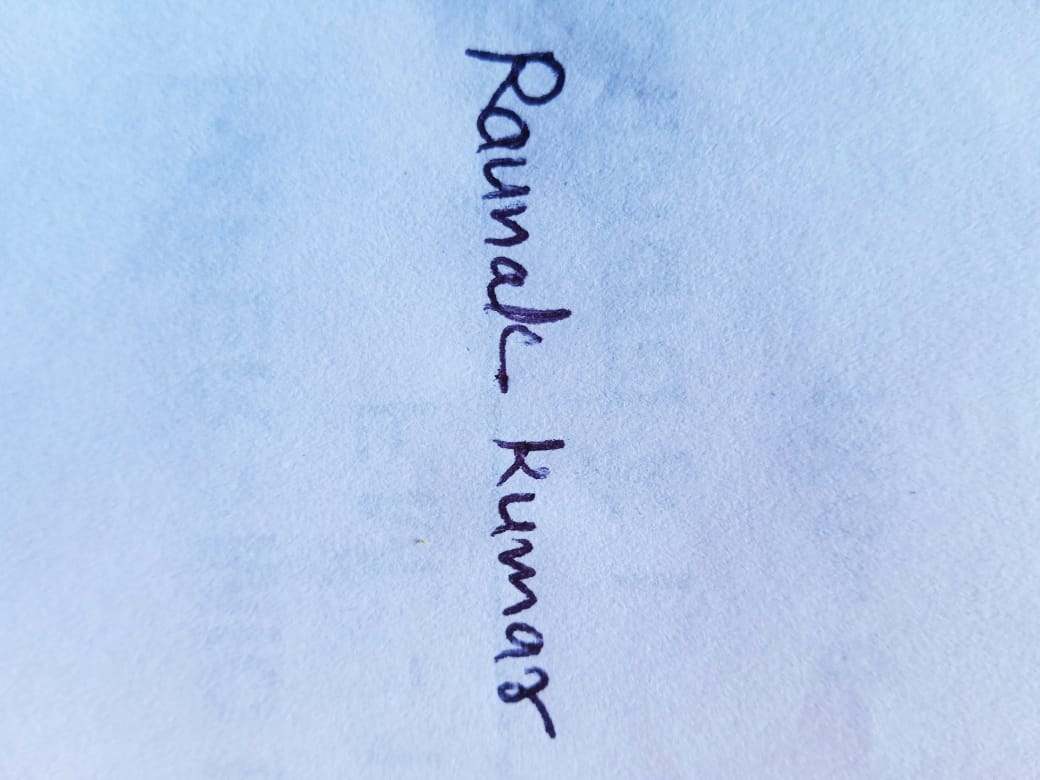 Raunak Kumar